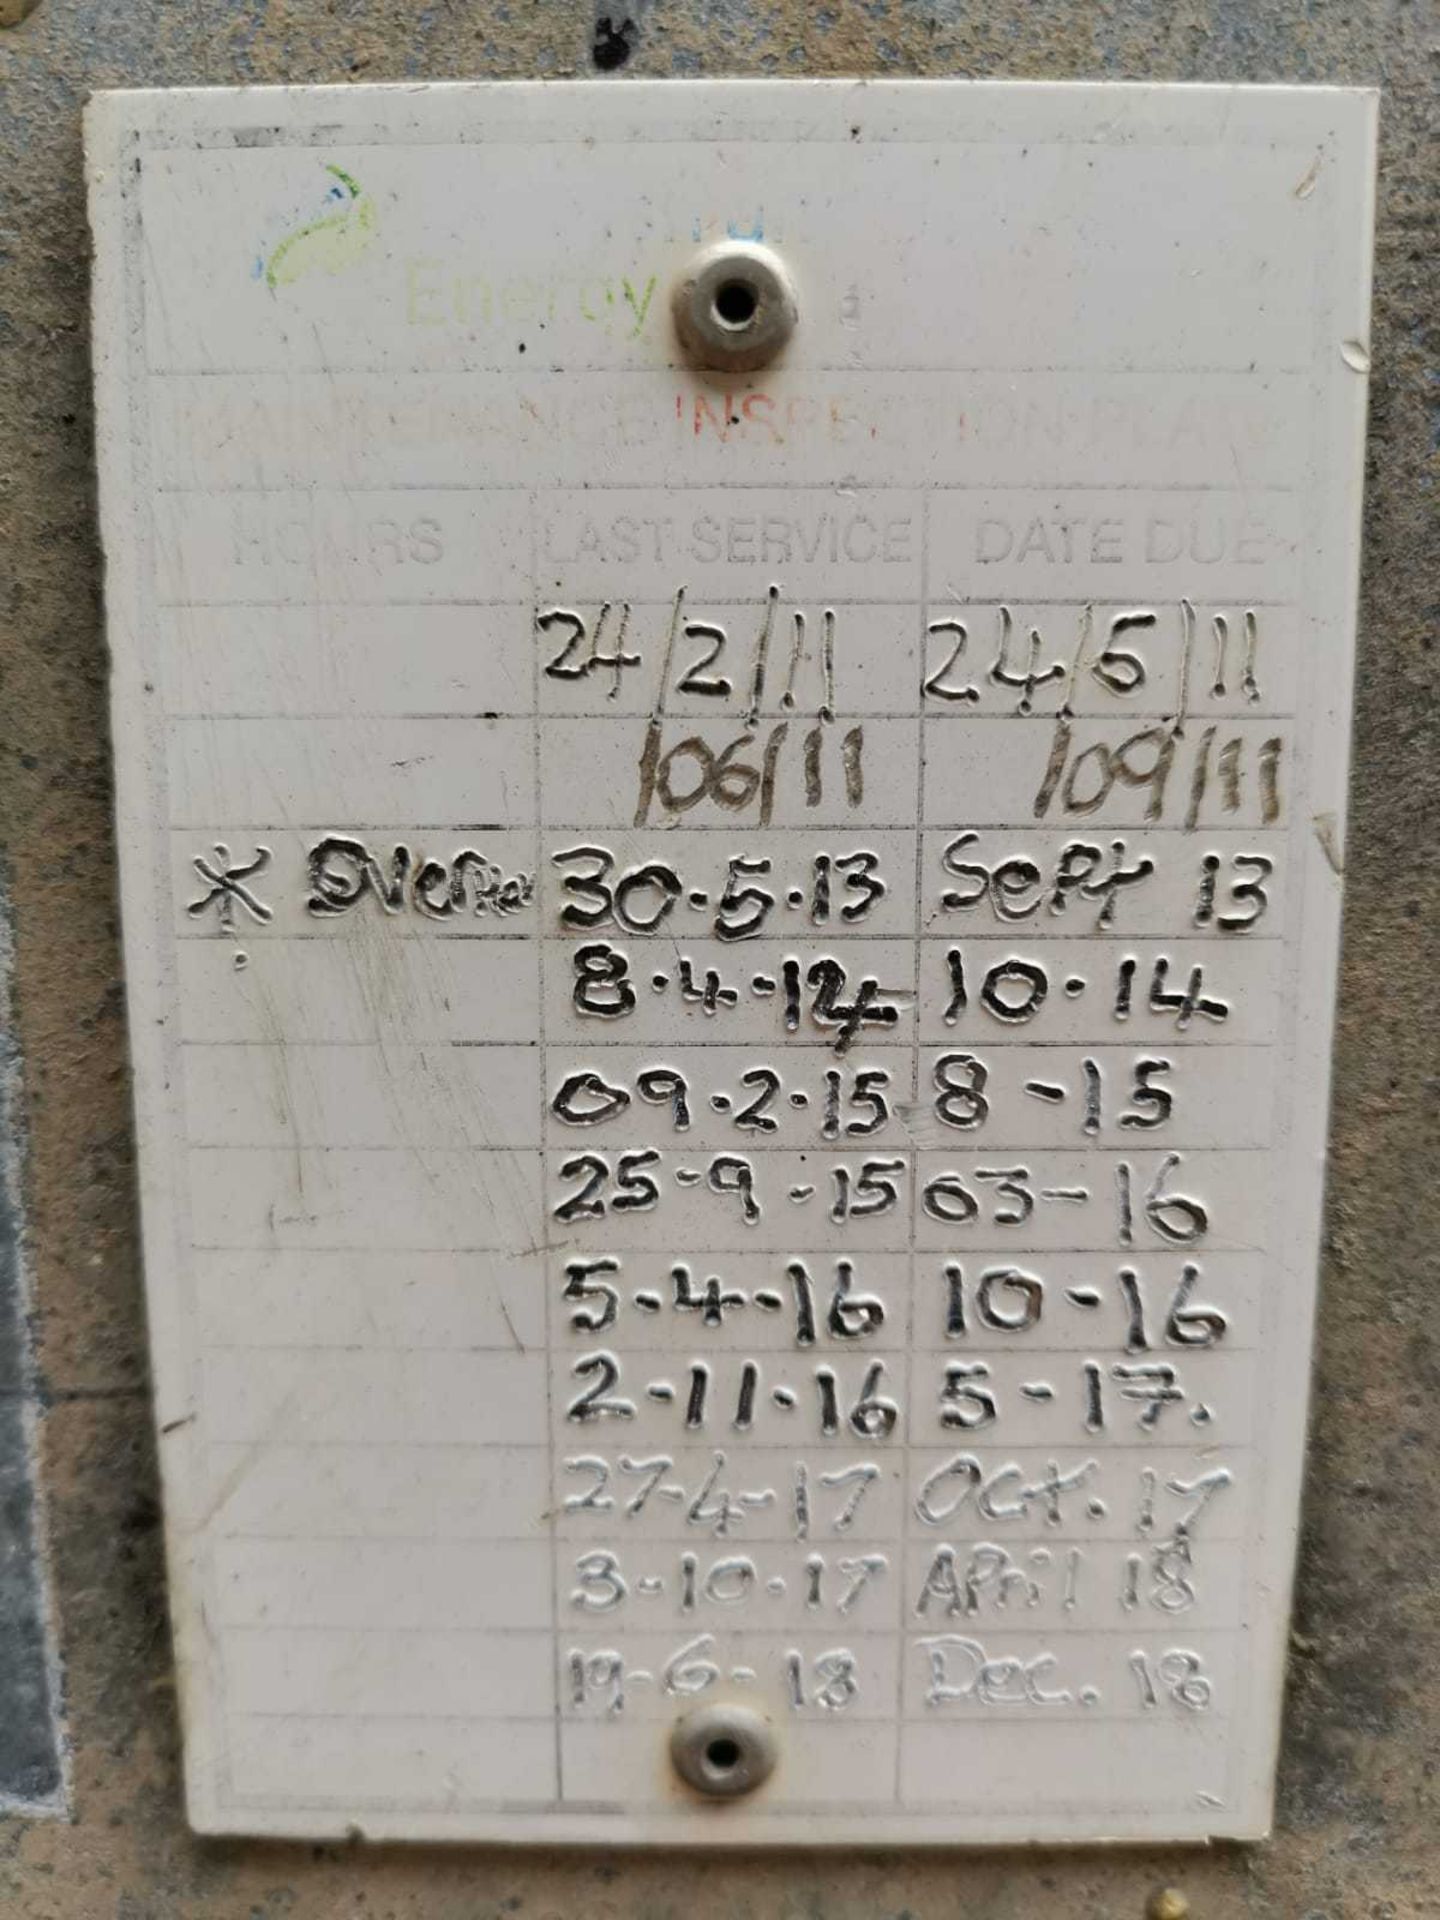 Energy
MAINTENANCE INSPECTION PLATE
HOURS LAST SERVICE DATE DUE
24/2/11 24/5/11
/06/11 /09/11
* 30.5.13 Sept 13
8.4.14 10.14
09.2.15 8-15
25-9-15 03-16
5-4-16 10-16
2-11-16 5-17.
27-4-17 Oct. 17
3-10-17 April 18
19-6-18 Dec. 18